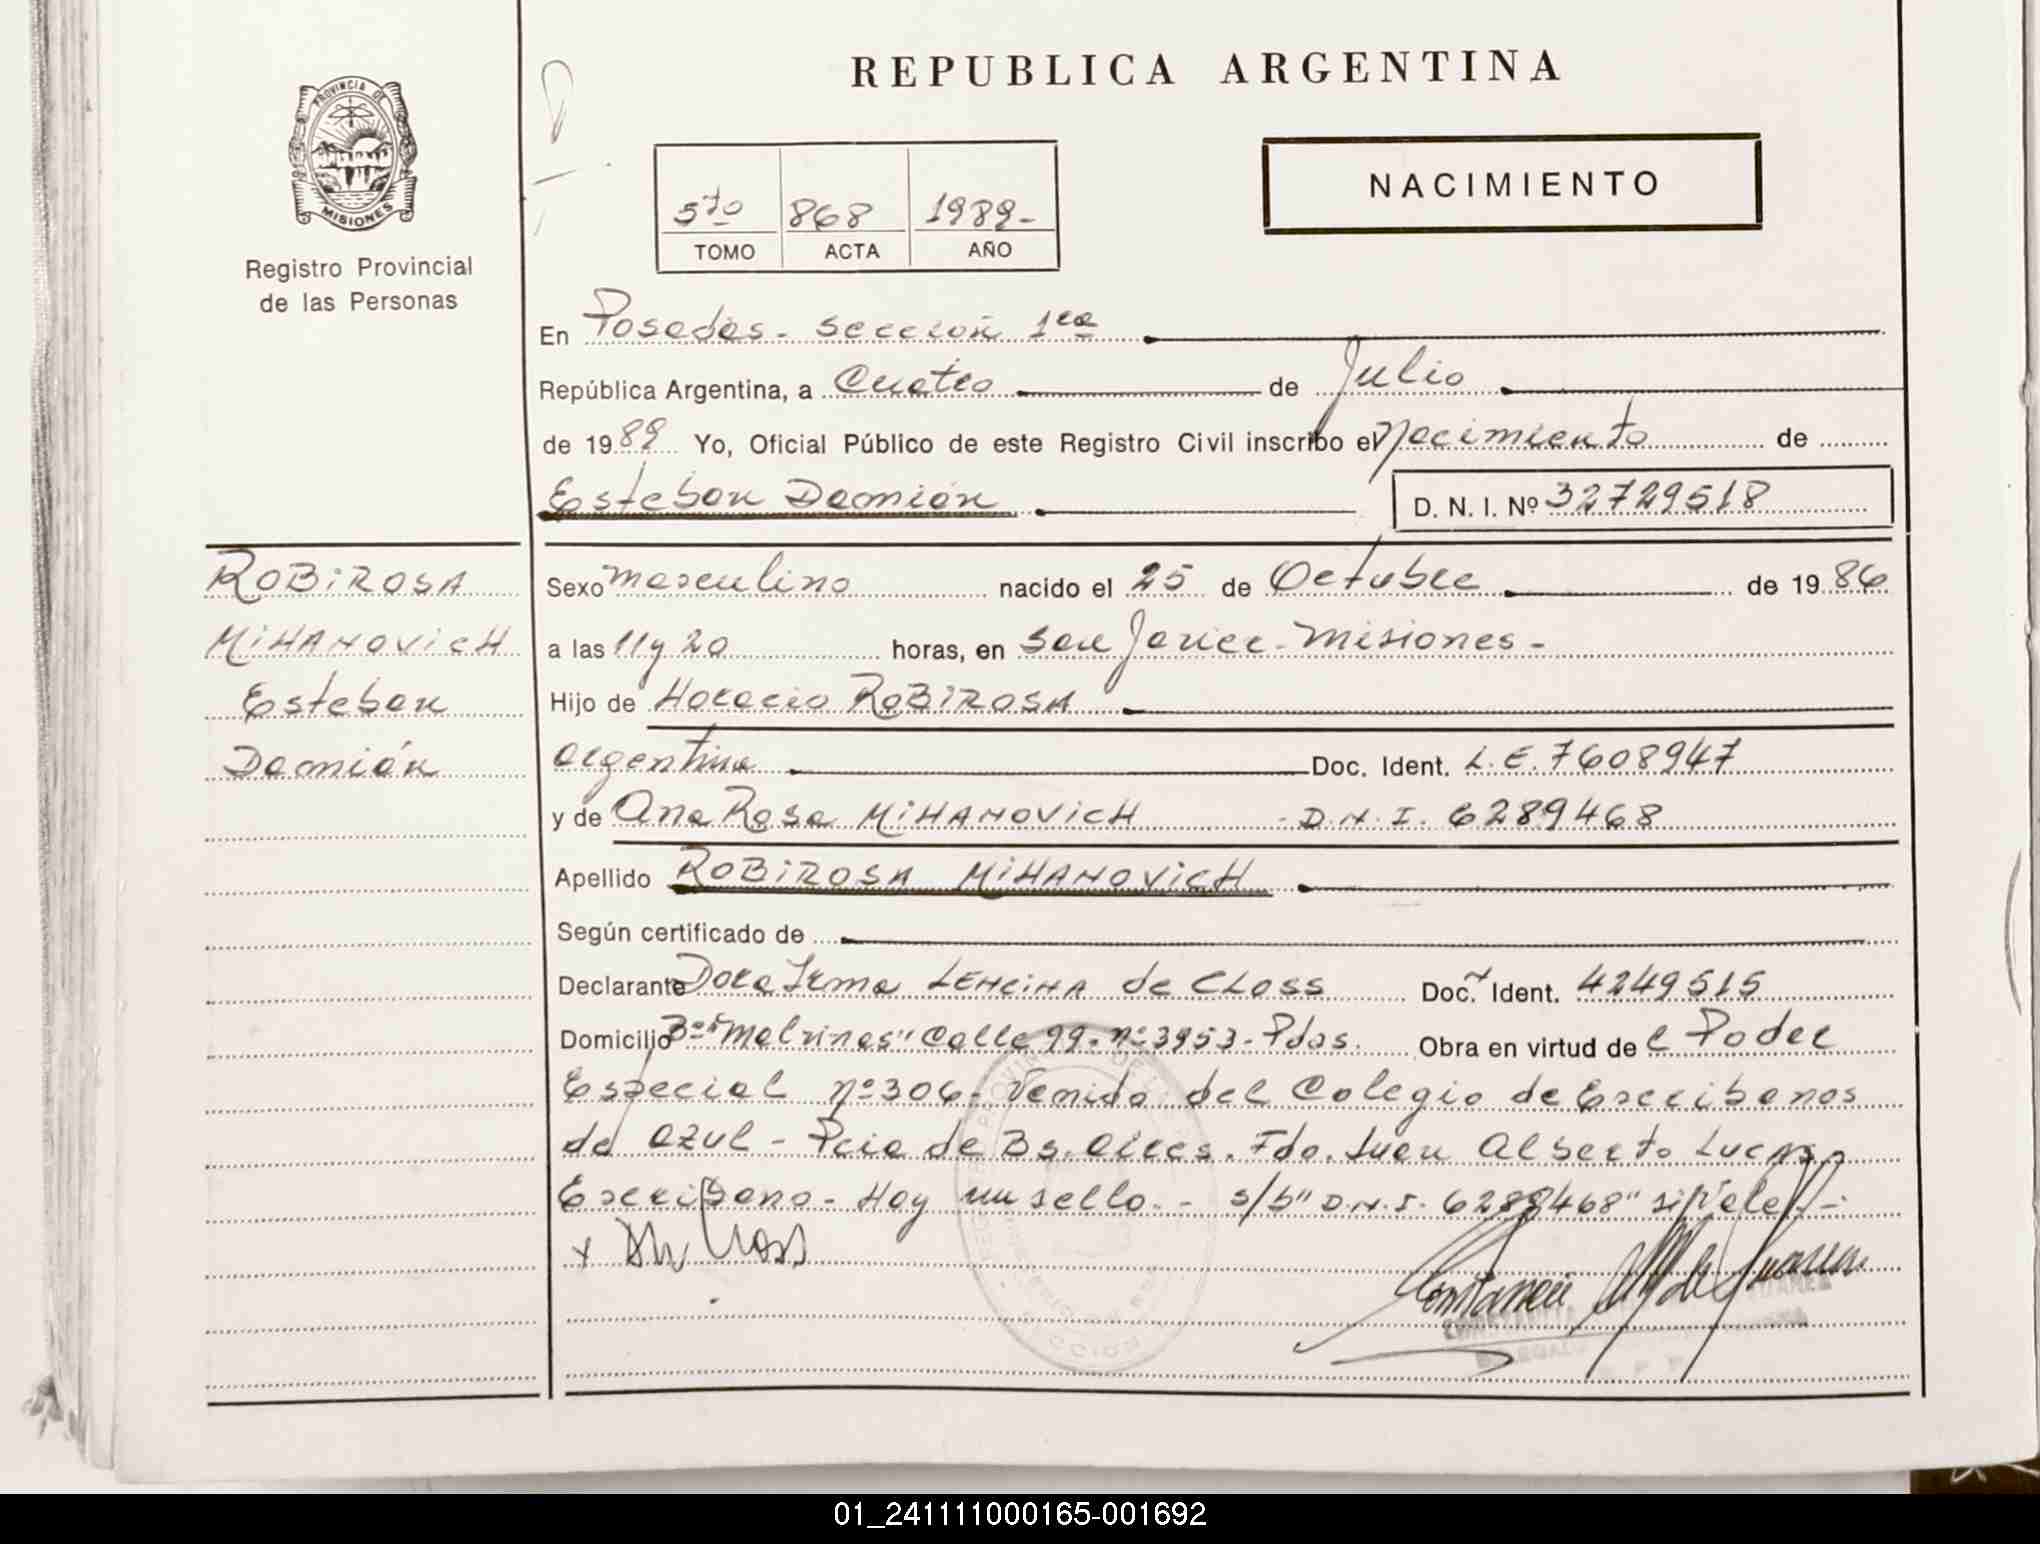 REPUBLICA ARGENTINA
PROVINCIA DE
MISIONES
Registro Provincial
de las Personas
5to 868 1989-
TOMO ACTA AÑO
NACIMIENTO
En Posadas - Sección 1ra
República Argentina, a Cuatro de Julio
de 1989 Yo, Oficial Público de este Registro Civil inscribo el Nacimiento de
Esteban Damián
D. N. I. Nº 32729518
ROBIROSA
MIHANOVICH
Esteban
Damián
Sexo masculino nacido el 25 de Octubre de 1986
a las 11 y 20 horas, en San Javier - Misiones -
Hijo de Horacio ROBIROSA
argentina Doc. Ident. L.E. 7608947
y de Ana Rosa MIHANOVICH - D.N.I. 6289468
Apellido ROBIROSA MIHANOVICH
Según certificado de
Declarante Dora Irma LENCINA de CLOSS Doc. Ident. 4249515
Domicilio Bº "Malvinas" Calle 99 - nº 3953 - Pdas. Obra en virtud de l Poder
Especial nº 306 - Venido del Colegio de Escribanos
de Azul - Pcia de Bs. Aires. Fdo. Juan Alberto Lucas
Escribano - Hay un sello. - s/b "D.N.I. 6289468" si Vale. -
x
01_241111000165-001692